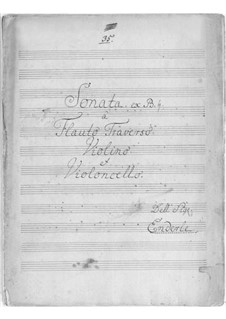 35.
Sonata ex B.
à
Flauto Traverso
Violino
et
Violoncello.
Dell Sigr.
Enderle.